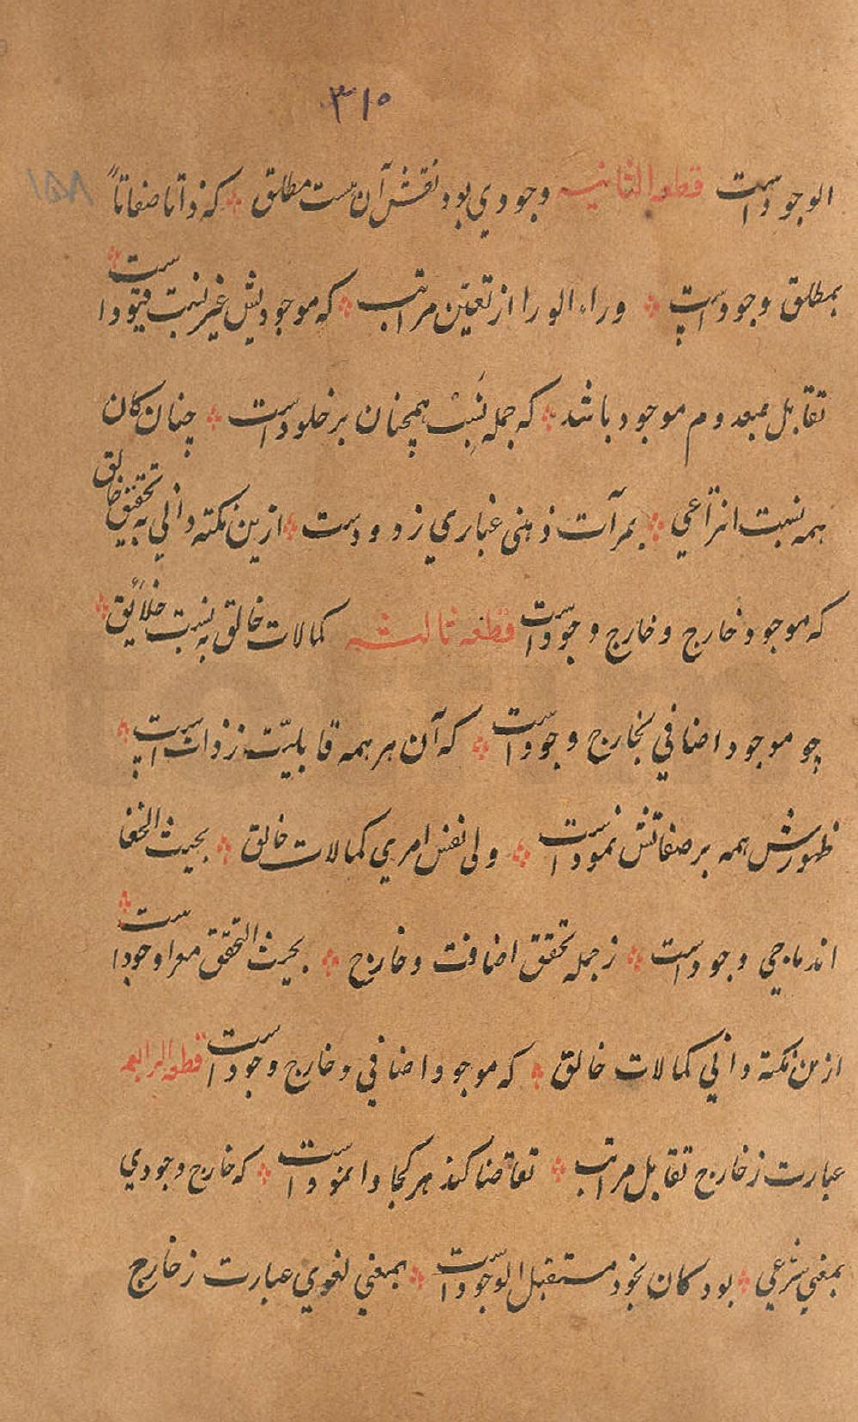 ۳۱۰
۱۵۸
الوجوداست قطعه الثانیه وجودي بود نقش آن هست مطلق ؞ که ذاتا صفاتاً
بمطلق وجوداست ؞ وراء الورا از تعیّن مراتب ؞ که موجودیش غیر نسبت قیوداست ؞
تقابل بمعدوم موجود باشد ؞ که جمله نِسَبْ همچنان بر خلوداست ؞ چنان کان
همه نسبت انتزاعي ؞ بمرآت ذهنی غباري زدودست ؞ ازین نکته داني به تحقیق خالق
که موجود خارج و خارج وجوداست قطعه ثالثه کمالات خالق به نسبت خلائق ؞
چو موجود اضافي بخارج وجوداست ؞ که آن هر همه قابلیّت ز ذات است ؞
ظهورش همه بر صفاتش نموداست ؞ ولی نفس امري کمالات خالق ؞ بحیث الخفا
اندماجي وجوداست ؞ ز جمله تحقق اضافت و خارج ؞ بحیث التحقق معرا وجوداست ؞
ازین نکته داني کمالات خالق ؞ که موجود اضافي و خارج وجوداست قطعه الرابعه
عبارت ز خارج تقابل مراتب ؞ تقاضا کند هر کجا وانموداست ؞ که خارج وجودي
بمعني شرعي ؞ بود کان بخود مستقبل الوجوداست ؞ بمعني لغوي عبارت ز خارج